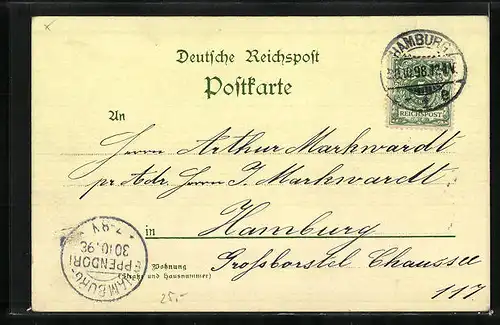 Deutsche Reichspost
Postkarte
HAMBURG
30.10.98.12-1N.
1 e
REICHSPOST
An
Herrn Arthur Markwardt
pr Adr. Herrn J. Markwardt
in Hamburg
Wohnung
(Straße und Hausnummer)
Grossborstel. Chaussee
117
HAMBURG-
EPPENDORF
30.10.98
25.-